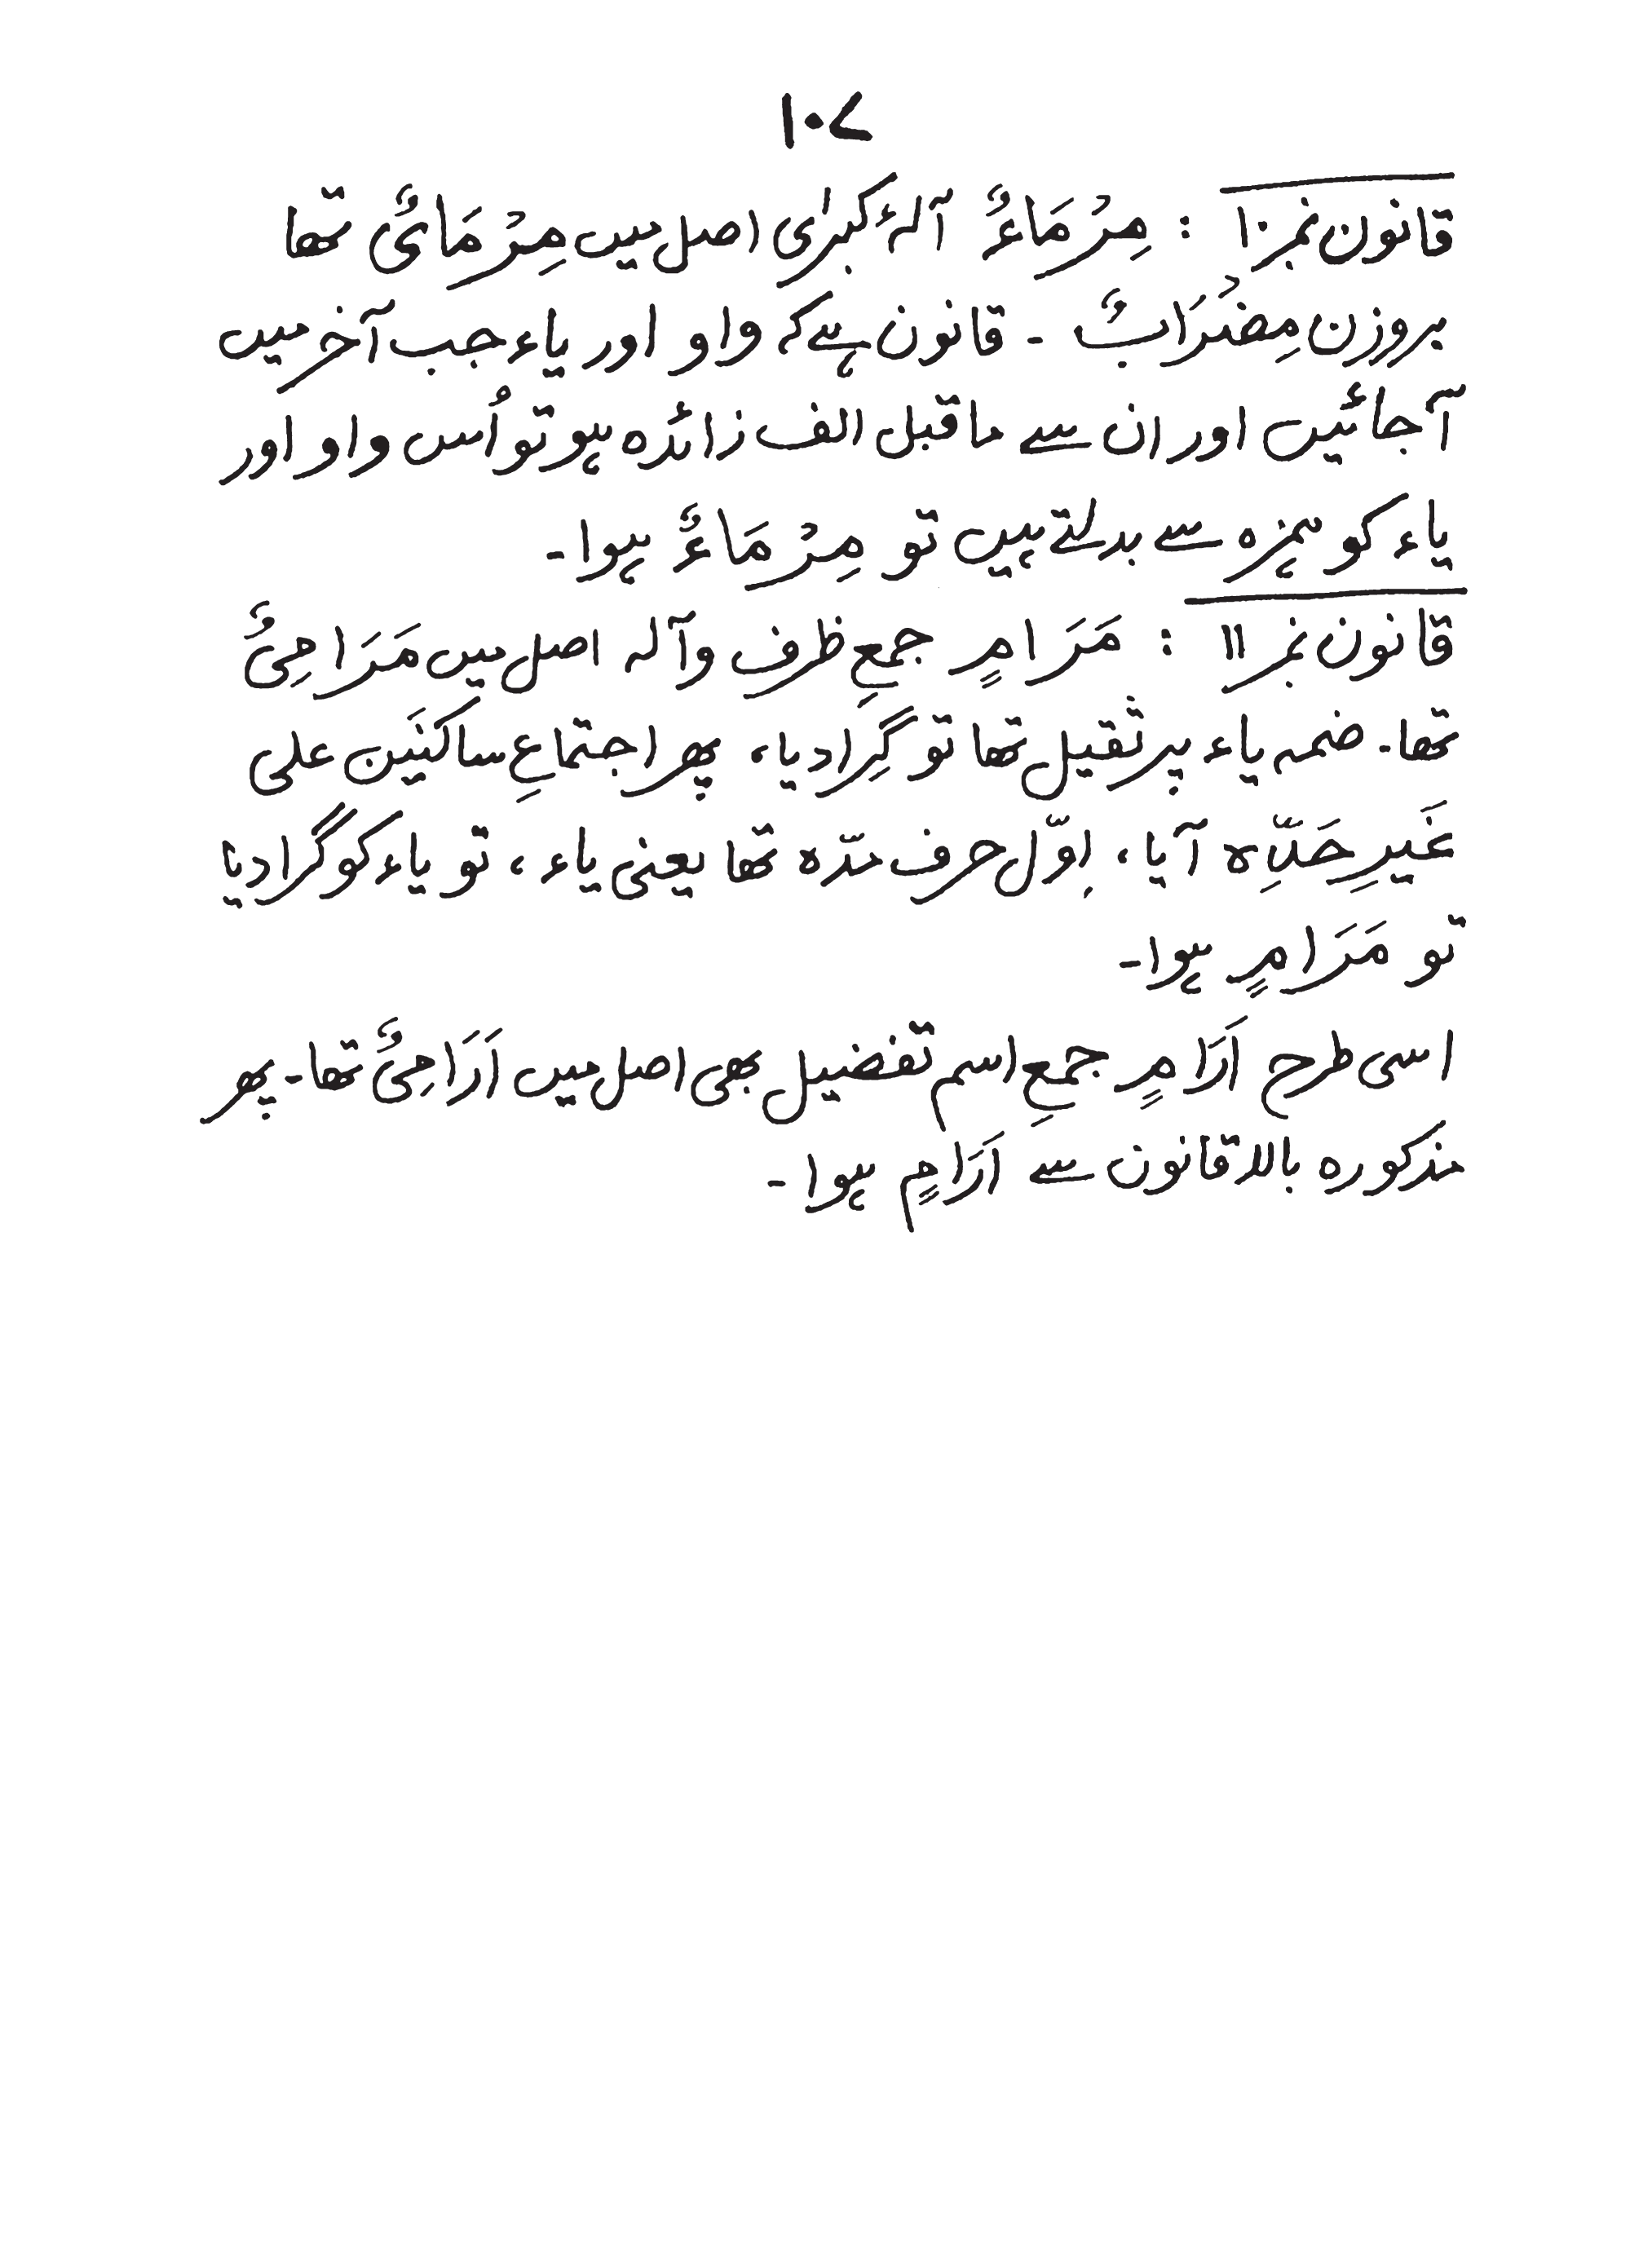 ۱۰۷
قانون نمبر ۱۰ : مِرْمَاءٌ آلۂ کبرٰی اصل میں مِرْمَایٌ تھا
بروزن مِضْرَابٌ ۔ قانون ہے کہ واو اور یاء جب آخر میں
آجائیں اور ان سے ماقبل الف زائدہ ہو تو اُس واو اور
یاء کو ہمزہ سے بدلتے ہیں تو مِرْمَاءٌ ہوا۔
قانون نمبر ۱۱ : مَرَامٍ جمعِ ظرف وآلہ اصل میں مَرَامِیُ
تھا۔ ضمہ یاء پر ثقیل تھا تو گِرا دیا، پھر اجتماعِ ساکنَین علی
غَیرِ حَدِّہ آیا، اوّل حرف مدّہ تھا یعنی یاء، تو یاء کو گرا دیا
تو مَرَامٍ ہوا۔
اسی طرح اَرَامٍ جمعِ اسم تفضیل بھی اصل میں اَرَامِیُ تھا۔ پھر
مذکورہ بالا قانون سے اَرَامٍ ہوا۔